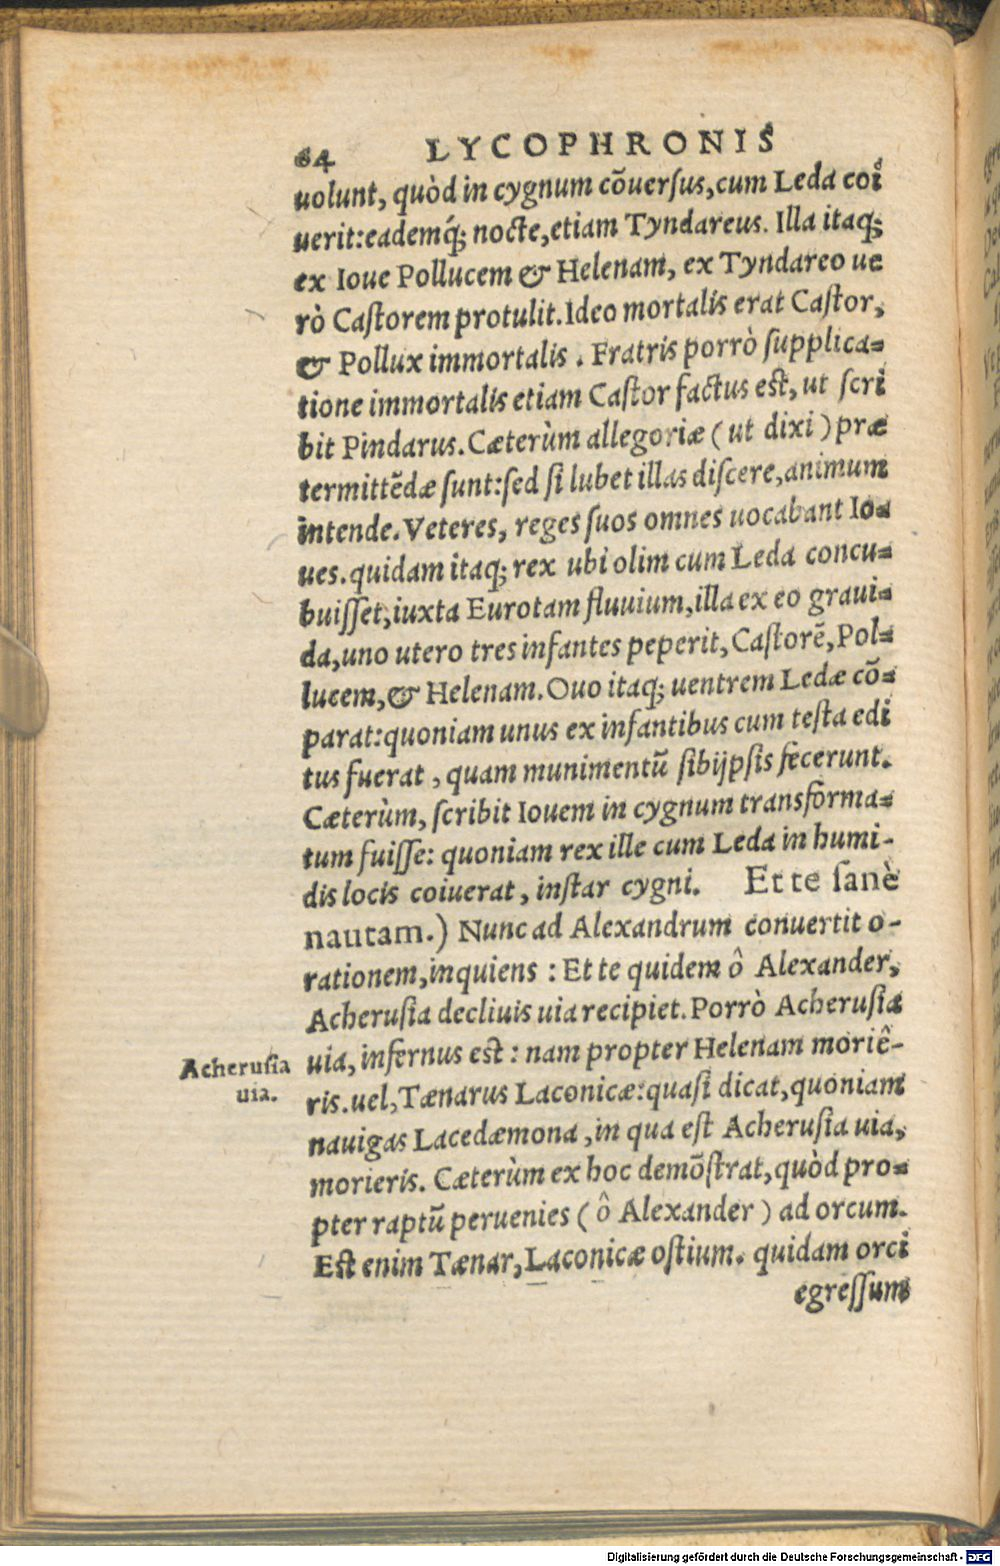 64 LYCOPHRONIS
uolunt, quòd in cygnum cõuersus, cum Leda coi
uerit: eademq́; nocte, etiam Tyndareus. Illa itaq;
ex Ioue Pollucem & Helenam, ex Tyndareo ue
rò Castorem protulit. Ideo mortalis erat Castor,
& Pollux immortalis. Fratris porrò supplica-
tione immortalis etiam Castor factus est, ut scri
bit Pindarus. Cæterùm allegoriæ (ut dixi) præ
termittẽdæ sunt: sed si lubet illas discere, animum
intende. Veteres, reges suos omnes uocabant Io-
ues. quidam itaq; rex ubi olim cum Leda concu-
buisset, iuxta Eurotam fluuium, illa ex eo graui-
da, uno utero tres infantes peperit, Castorẽ, Pol-
lucem, & Helenam. Ouo itaq; uentrem Ledæ cõ-
parat: quoniam unus ex infantibus cum testa edi
tus fuerat, quam munimentũ sibijpsis fecerunt.
Cæterùm, scribit Iouem in cygnum transforma-
tum fuisse: quoniam rex ille cum Leda in humi-
dis locis coiuerat, instar cygni. Et te sanè
nautam.) Nunc ad Alexandrum conuertit o-
rationem, inquiens: Et te quidem ô Alexander,
Acherusia decliuis uia recipiet. Porrò Acherusia
Acherusia
uia.
uia, infernus est: nam propter Helenam moriê-
ris. uel, Tænarus Laconicæ: quasi dicat, quoniam
nauigas Lacedæmona, in qua est Acherusia uia,
morieris. Cæterùm ex hoc demõstrat, quòd pro-
pter raptũ peruenies (ô Alexander) ad orcum.
Est enim Tænar, Laconicæ ostium. quidam orci
egressum
Digitalisierung gefördert durch die Deutsche Forschungsgemeinschaft - DFG